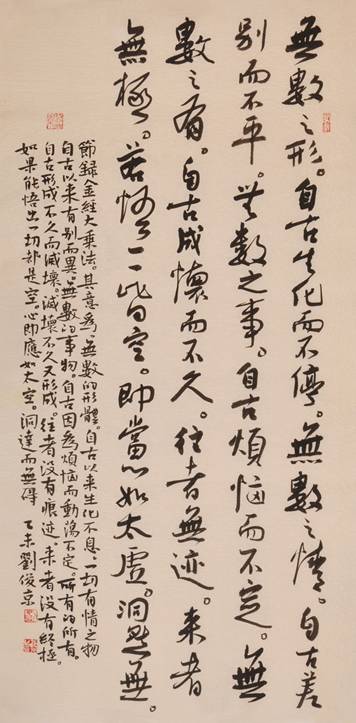 無數之形。自古生化而不停。無數之情。自古差
別而不平。無數之事。自古煩惱而不定。無
數之有。自古成懷而不久。往者無迹。来者
無極。若悟一一皆空。即當心如太虛。洞達無。
節録金經大乘法。其意為無數的形體。自古以来生化不息。一切有情之物
自古以来有别而異。無數的事物。自古因為煩惱而動蕩不定。所有的所有。
自古形成不久而滅壞。滅壞不久又形成。往者没有痕迹。来者没有終極。
如果能悟出一切都是空。心即應如太空。洞達而無碍
乙未劉俊京